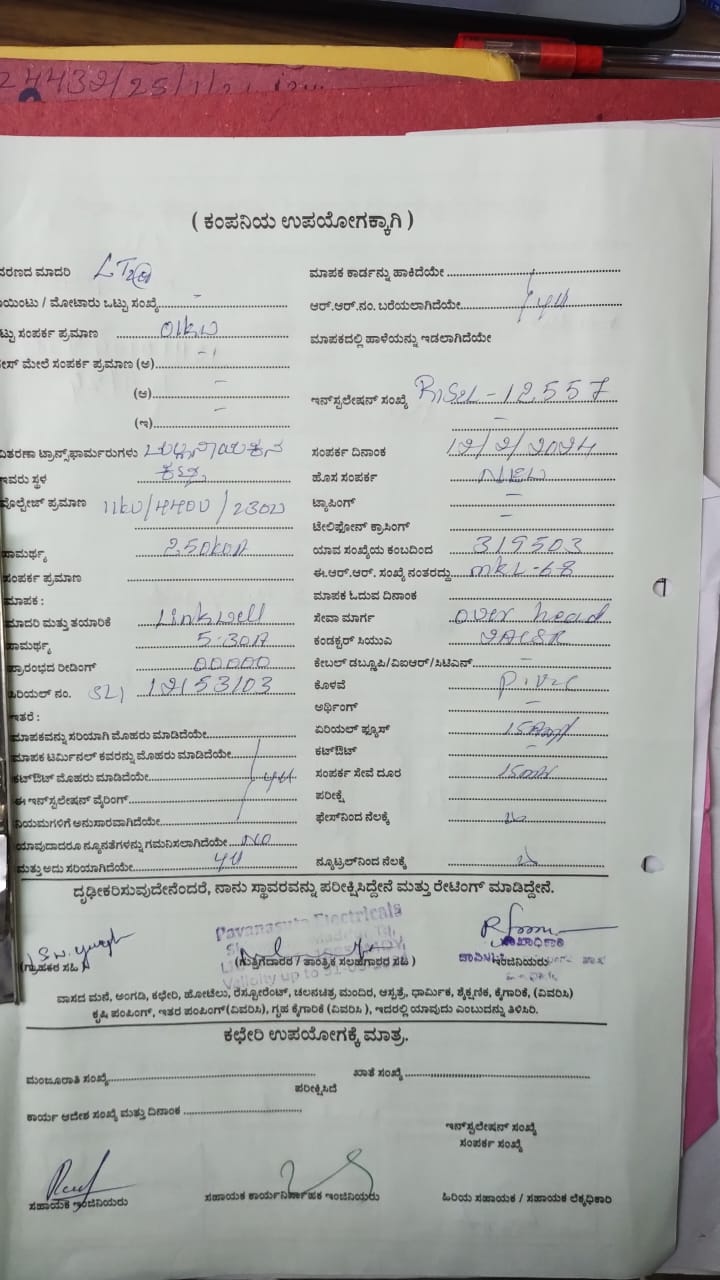 24432/25/1/21
( ಕಂಪನಿಯ ಉಪಯೋಗಕ್ಕಾಗಿ )
ವರಣದ ಮಾದರಿ LT2(a)
ಮಾಪಕ ಕಾರ್ಡನ್ನು ಹಾಕಿದೆಯೇ
ಯಿಂಟು / ಮೋಟಾರು ಒಟ್ಟು ಸಂಖ್ಯೆ -
ಆರ್.ಆರ್.ನಂ. ಬರೆಯಲಾಗಿದೆಯೇ
ಟ್ಟು ಸಂಪರ್ಕ ಪ್ರಮಾಣ 01KW
ಮಾಪಕದಲ್ಲಿ ಹಾಳೆಯನ್ನು ಇಡಲಾಗಿದೆಯೇ
ೇಸ್ ಮೇಲೆ ಸಂಪರ್ಕ ಪ್ರಮಾಣ (ಅ)
(ಆ) -
(ಇ) -
ಇನ್‌ಸ್ಟಲೇಷನ್ ಸಂಖ್ಯೆ -12557
ವಿತರಣಾ ಟ್ರಾನ್ಸ್‌ಫಾರ್ಮರುಗಳು
ಸಂಪರ್ಕ ದಿನಾಂಕ 12/2/2024
ಇವರು ಸ್ಥಳ ಕಟ್ಟೆ
ಹೊಸ ಸಂಪರ್ಕ NEW
ವೊಲ್ಟೇಜ್ ಪ್ರಮಾಣ 11KV/440V/230V
ಟ್ಯಾಪಿಂಗ್ -
ಟೇಲಿಫೋನ್ ಕ್ರಾಸಿಂಗ್ -
ಸಾಮರ್ಥ್ಯ 250KVA
ಯಾವ ಸಂಖ್ಯೆಯ ಕಂಬದಿಂದ 319503
ಸಂಪರ್ಕ ಪ್ರಮಾಣ
ಈ.ಆರ್.ಆರ್. ಸಂಖ್ಯೆ ನಂತರದ್ದು MKL-68
ಮಾಪಕ :
ಮಾಪಕ ಓದುವ ದಿನಾಂಕ
ಮಾದರಿ ಮತ್ತು ತಯಾರಿಕೆ Linkwell
ಸೇವಾ ಮಾರ್ಗ over head
ಸಾಮರ್ಥ್ಯ 5-30A
ಕಂಡಕ್ಟರ್ ಸಿಯುಎ
ಪ್ರಾರಂಭದ ರೀಡಿಂಗ್ 00000
ಕೇಬಲ್ ಡಬ್ಲ್ಯೂಪಿ/ವಿಐಆರ್/ಸಿಟಿಎಸ್ -
ಸಿರಿಯಲ್ ನಂ. 12153103
ಕೊಳವೆ P.V.C
ಇತರೆ :
ಅರ್ಥಿಂಗ್ -
ಮಾಪಕವನ್ನು ಸರಿಯಾಗಿ ಮೊಹರು ಮಾಡಿದೆಯೇ
ಏರಿಯಲ್ ಫ್ಯೂಸ್
ಮಾಪಕ ಟರ್ಮಿನಲ್ ಕವರನ್ನು ಮೊಹರು ಮಾಡಿದೆಯೇ
ಕಟ್‌ಔಟ್ -
ಕಟ್‌ಔಟ್ ಮೊಹರು ಮಾಡಿದೆಯೇ
ಸಂಪರ್ಕ ಸೇವೆ ದೂರ
ಈ ಇನ್‌ಸ್ಟಲೇಷನ್ ವೈರಿಂಗ್
ಪರೀಕ್ಷೆ
ನಿಯಮಗಳಿಗೆ ಅನುಸಾರವಾಗಿದೆಯೇ
ಫೇಸ್‌ನಿಂದ ನೆಲಕ್ಕೆ
ಯಾವುದಾದರೂ ನ್ಯೂನತೆಗಳನ್ನು ಗಮನಿಸಲಾಗಿದೆಯೇ NO
ಮತ್ತು ಅದು ಸರಿಯಾಗಿದೆಯೇ
ನ್ಯೂಟ್ರಲ್‌ನಿಂದ ನೆಲಕ್ಕೆ
ದೃಢೀಕರಿಸುವುದೇನೆಂದರೆ, ನಾನು ಸ್ಥಾವರವನ್ನು ಪರೀಕ್ಷಿಸಿದ್ದೇನೆ ಮತ್ತು ರೇಟಿಂಗ್ ಮಾಡಿದ್ದೇನೆ.
Pavanasuta Electricals
(ಗ್ರಾಹಕರ ಸಹಿ)
(ಗುತ್ತಿಗೆದಾರರ / ತಾಂತ್ರಿಕ ಸಲಹೆಗಾರರ ಸಹಿ)
ಶಾಖಾಧಿಕಾರಿ
ಇಂಜಿನಿಯರು
Validity up to
ವಾಸದ ಮನೆ, ಅಂಗಡಿ, ಕಛೇರಿ, ಹೋಟೆಲು, ರೆಸ್ಟೋರೆಂಟ್, ಚಲನಚಿತ್ರ ಮಂದಿರ, ಆಸ್ಪತ್ರೆ, ಧಾರ್ಮಿಕ, ಶೈಕ್ಷಣಿಕ, ಕೈಗಾರಿಕೆ, (ವಿವರಿಸಿ)
ಕೃಷಿ ಪಂಪಿಂಗ್, ಇತರ ಪಂಪಿಂಗ್(ವಿವರಿಸಿ), ಗೃಹ ಕೈಗಾರಿಕೆ (ವಿವರಿಸಿ ), ಇದರಲ್ಲಿ ಯಾವುದು ಎಂಬುದನ್ನು ತಿಳಿಸಿರಿ.
ಕಛೇರಿ ಉಪಯೋಗಕ್ಕೆ ಮಾತ್ರ.
ಮಂಜೂರಾತಿ ಸಂಖ್ಯೆ
ಖಾತೆ ಸಂಖ್ಯೆ
ಪರೀಕ್ಷಿಸಿದೆ
ಕಾರ್ಯ ಆದೇಶ ಸಂಖ್ಯೆ ಮತ್ತು ದಿನಾಂಕ
ಇನ್‌ಸ್ಟಲೇಷನ್ ಸಂಖ್ಯೆ
ಸಂಪರ್ಕ ಸಂಖ್ಯೆ
ಸಹಾಯಕ ಇಂಜಿನಿಯರು
ಸಹಾಯಕ ಕಾರ್ಯನಿರ್ವಾಹಕ ಇಂಜಿನಿಯರು
ಹಿರಿಯ ಸಹಾಯಕ / ಸಹಾಯಕ ಲೆಕ್ಕಧಿಕಾರಿ